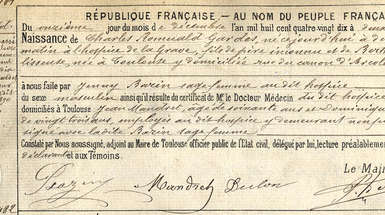 RÉPUBLIQUE FRANÇAISE. — AU NOM DU PEUPLE FRANÇA
Du onzième jour du mois de décembre l'an mil huit cent quatre-vingt dix à deux
Naissance de Charles Romuald Gardes, né aujourd'hui à de
matin à l'hospice de la Grave, fils de père inconnu et de
née à Toulouse y domiciliée rue du canon d'Arcole
à nous faite par Jenny Bazin sage femme au dit hospice
du sexe masculin ainsi qu'il résulte du certificat de Mr le Docteur Médecin du dit hospice
domiciliés à Toulouse Jean Mandret, âgé de soixante et Dominique
de vingt employés au dit hospice y demeurant non
signé avec la dite Bazin sage femme
Constaté par Nous soussigné, adjoint au Maire de Toulouse officier public de l'Etat civil, délégué par lui, lecture préalablement
déclarant et aux Témoins.
Le Mai
Mandret Dulon